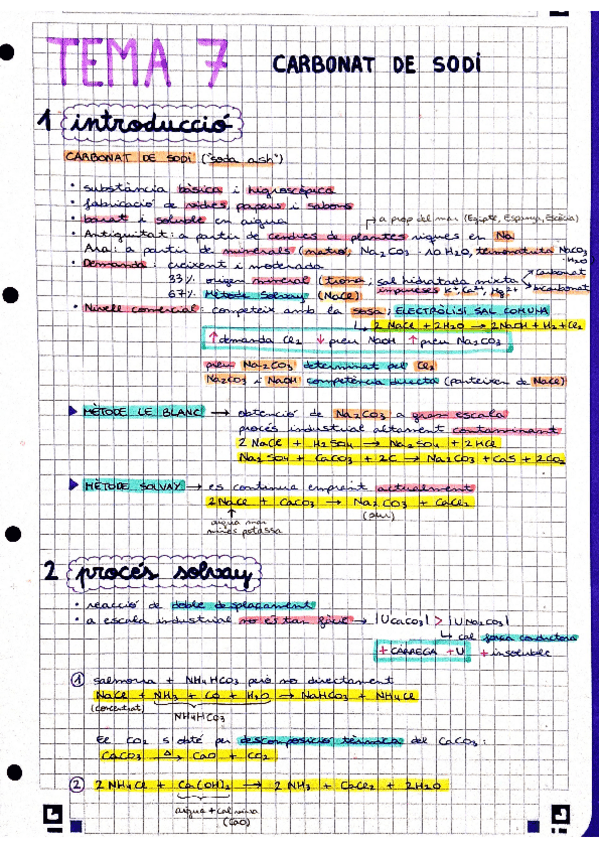 TEMA 7 CARBONAT DE SODI
1 introducció
CARBONAT DE SODI ("soda ash")
• substància bàsica i higroscòpica
• fabricació de vidres, papers i sabons
• barat i soluble en aigua
↳ a prop del mar (Egipte, Espanya, Escòcia)
• Antiguitat: a partir de cendres de plantes riques en Na
Ara: a partir de minerals (natró, Na2CO3 · 10 H2O, termonatrita Na2CO3 · H2O)
• Demanda: creixent i moderada
33% origen mineral (trona; sal hidratada mixta → carbonat
→ bicarbonat
impureses K+, Ca2+, Mg2+
67% Mètode Solvay (NaCl)
• Nivell comercial: competeix amb la sosa; ELECTRÒLISI SAL COMUNA
↳ 2 NaCl + 2H2O → 2NaOH + H2 + Cl2
↑ demanda Cl2 ↓ preu NaOH ↑ preu Na2CO3
preu Na2CO3 determinat pel Cl2
Na2CO3 i NaOH competència directa (parteixen de NaCl)
▶ MÈTODE LE BLANC → obtenció de Na2CO3 a gran escala
procés industrial altament contaminant
2 NaCl + H2SO4 → Na2SO4 + 2HCl
Na2SO4 + CaCO3 + 2C → Na2CO3 + CaS + 2CO2
▶ MÈTODE SOLVAY → es continua emprant actualment
2NaCl + CaCO3 → Na2CO3 + CaCl2
↑
aigua mar
mines potassa
2 procés solvay
• reacció de doble desplaçament
• a escala industrial no és tan fàcil → |UCaCO3| > |UNa2CO3|
↳ cal força conductora
+ CÀRREGA +U + insoluble
① salmorra + NH4HCO3 però no directament
NaCl + NH3 + CO + H2O → NaHCO3 + NH4Cl
(concentrat)
NH4HCO3
El CO2 s'obté per descomposició tèrmica del CaCO3:
CaCO3 Δ→ CaO + CO2
② 2 NH4Cl + Ca(OH)2 → 2 NH3 + CaCl2 + 2H2O
aigua + calç viva
(CaO)